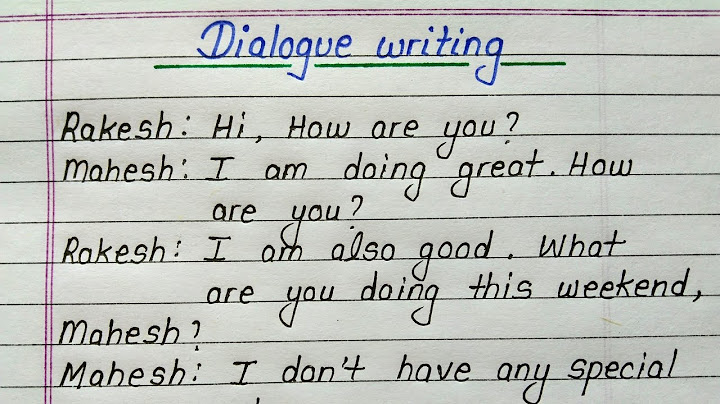 Dialogue writing
Rakesh: Hi, How are you?
Mahesh: I am doing great. How
are you?
Rakesh: I am also good. What
are you doing this weekend,
Mahesh?
Mahesh: I don't have any special